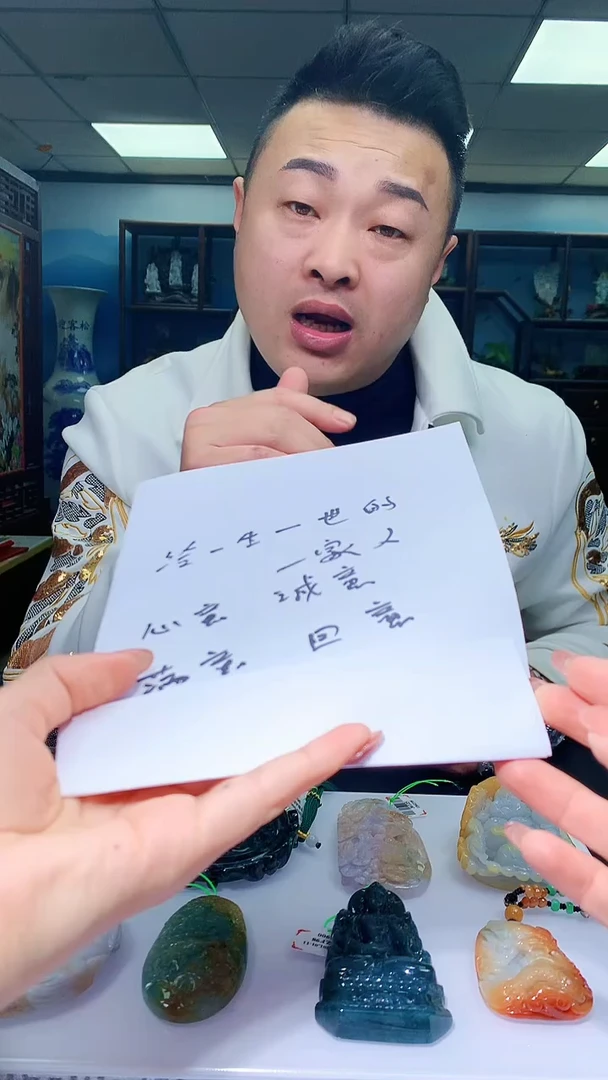 给一生一世的
一家人
心意 诚意
满意 回意